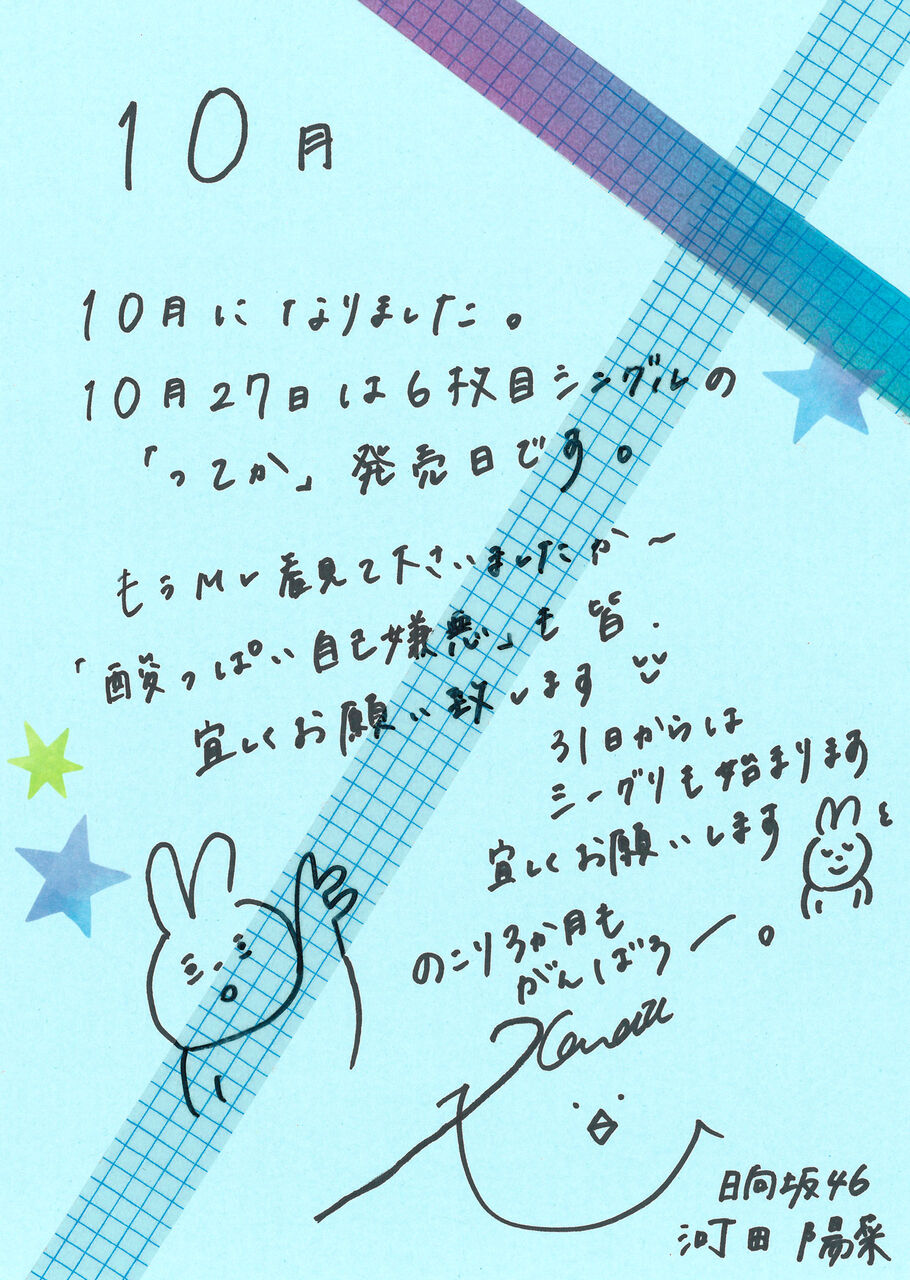 10月
10月になりました。
10月27日は6枚目シングルの
「ってか」発売日です。
もうMV着見て下さいましたか〜
「酸っぱい自己嫌悪」も皆.
宜しくお願い致します
31日からは
ミーグリも始まります
宜しくお願いします
のこり3か月も
がんばろー。
Kanata
日向坂46
河田 陽菜